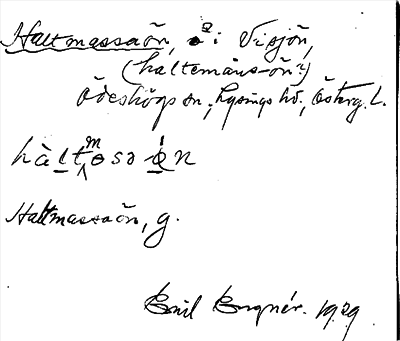 Haltmassaön, ö i Visjön,
(haltemäns-ön?)
Ödeshögs sn, Lysings hd, Österg. L.
hàltməsaön
Haltmassaön, g.
Emil 1929